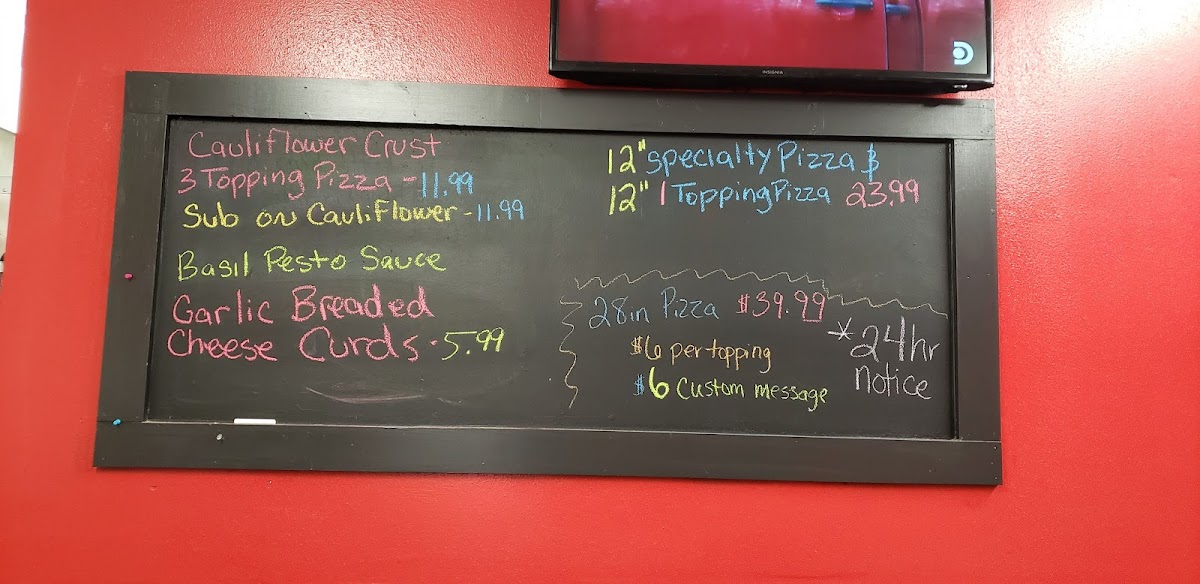 INSIGNIA
Cauliflower Crust
3 Topping Pizza - 11.99
Sub on Cauliflower - 11.99
Basil Pesto Sauce
Garlic Breaded
Cheese Curds - 5.99
12" specialty Pizza &
12" 1 Topping Pizza 23.99
28in Pizza $39.99
$6 per topping
$6 Custom message
*24hr
notice